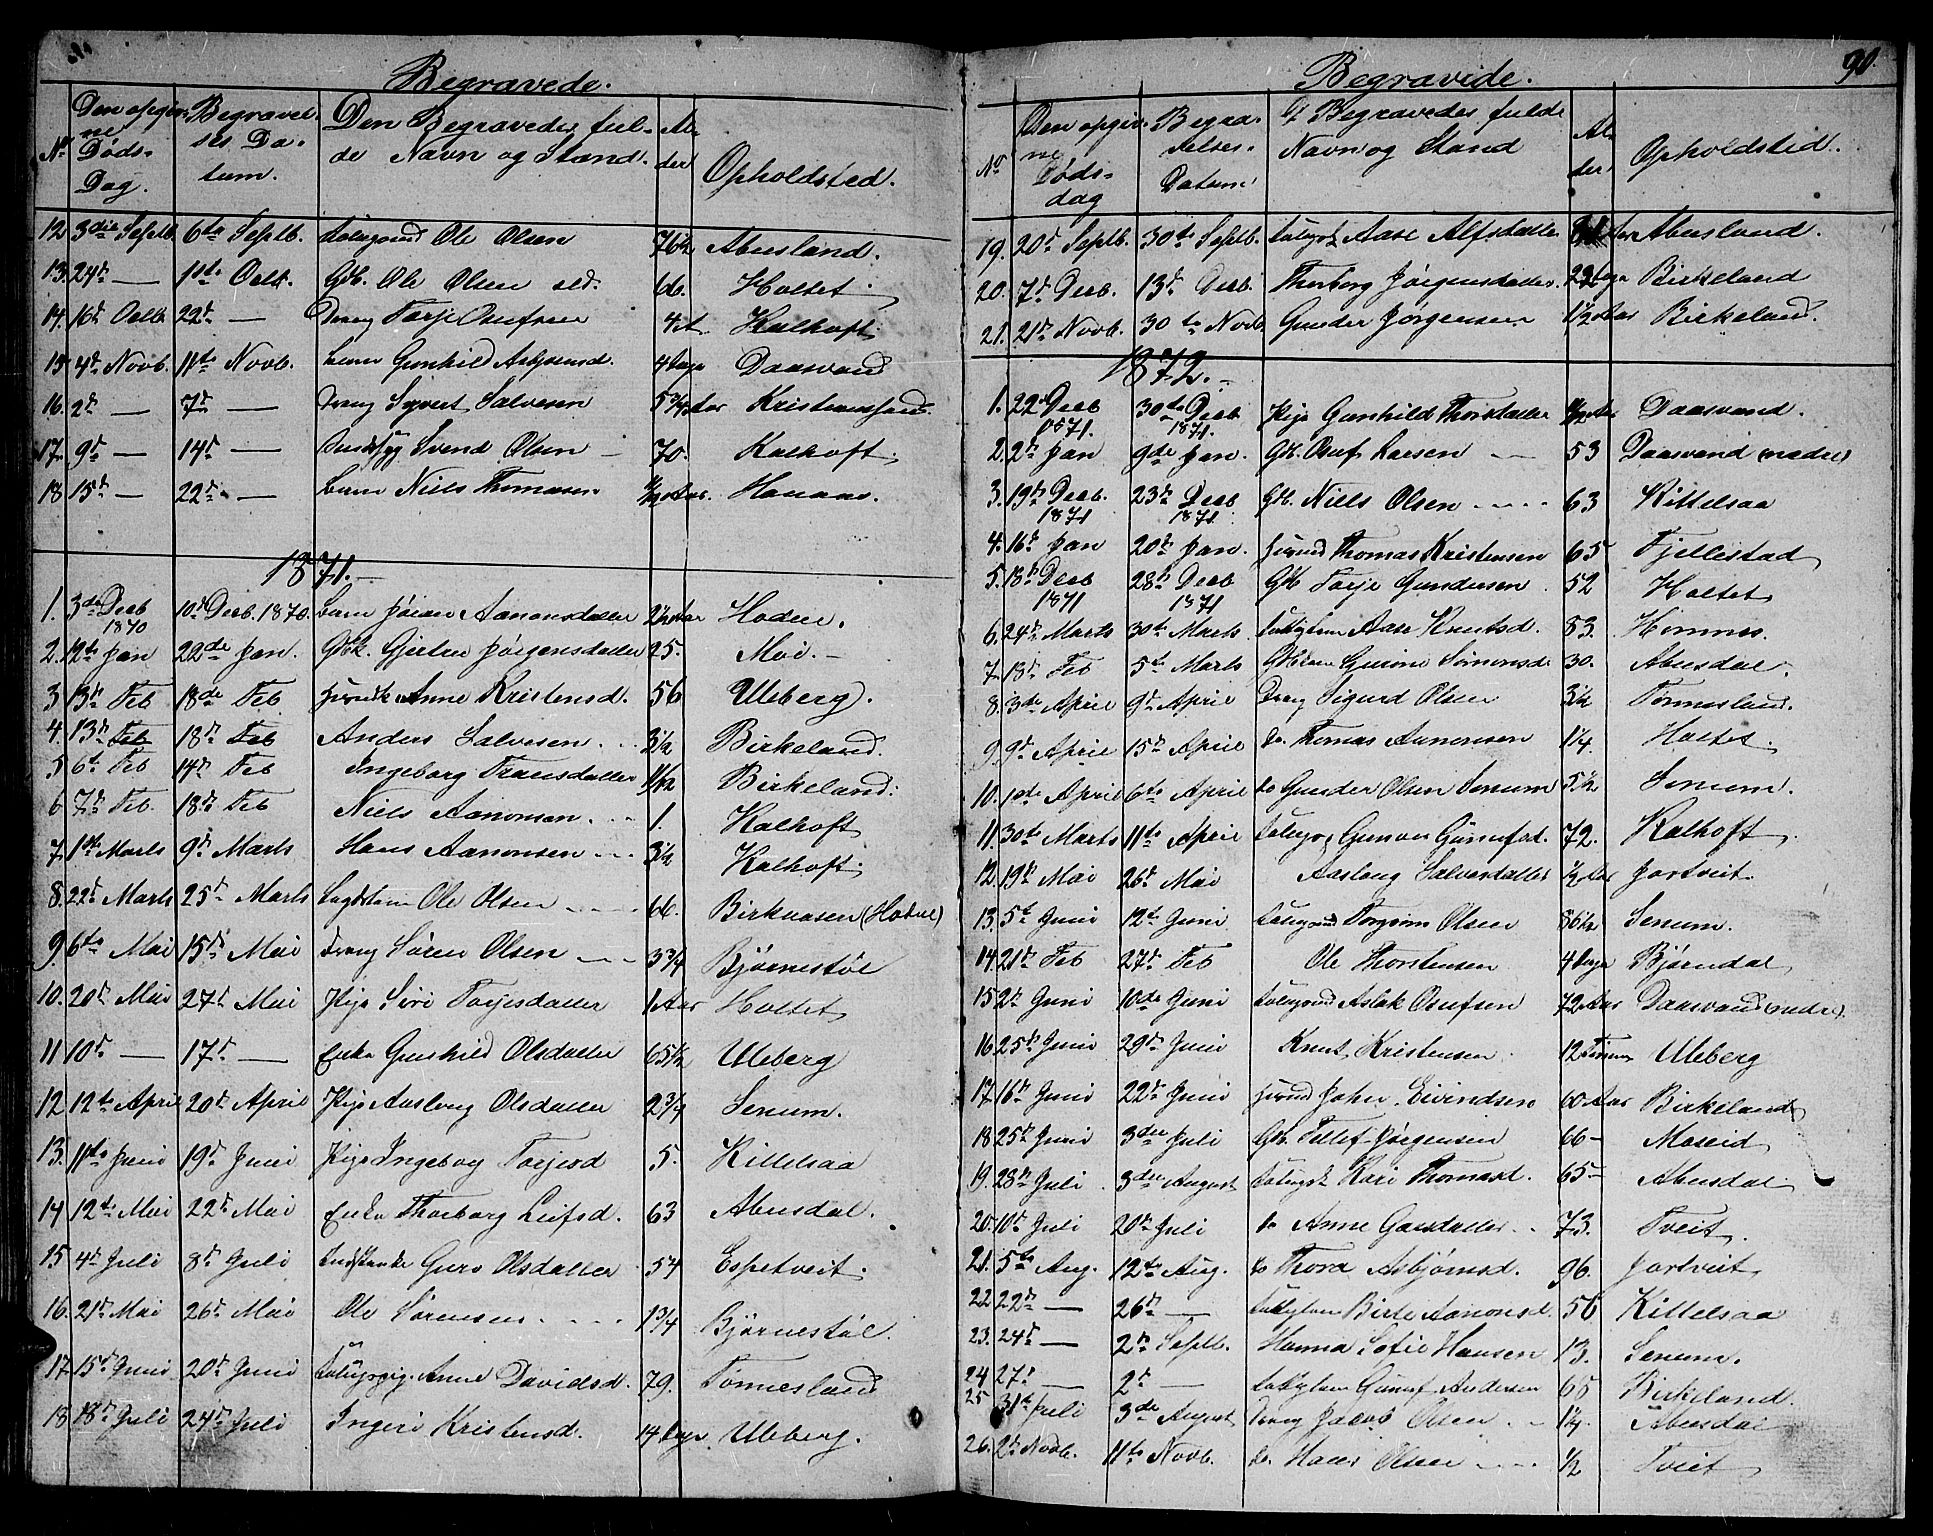 Begravede.
No Den opgivne Døds-Dag. Begravelses Datum. Den Begravedes fulde Navn og Stand. Alder Opholdsted.
12 3die Septb. 6te Septb. Ole Olsen 76 1/2 Abusland.
13. 24de — 1ste Octb. Gbr. Ole Olsen 66. Holtet.
14. 16de Octb 22de — Dreng Torje Osufsen Kalhoft.
15 4de Novb. 11te Novb. barn Gunhild Asbjørnsd. 4 Dage Daasvand
16. 2de — 7de — Dreng Syvert Salvesen 5 3/4 Aar Kristianssand.
17. 9de — 14de — Svend Olsen — 70. Kalhoft.
18 15de — 22de — barn Niels Thomasen Hanaas.
1871.
1. 3de Decb 1870 10de Decb. 1870. barn Jøran Aanonsdatter Hodne.
2. 12te Jan 22de Jan. Gbk. Gjertru Jørgensdatter 25. Moi. —
3 13de Feb 18de Feb Anne Kristensd. 56 Uleberg.
4. 13de Feb 18de Feb Anders Salvesen 3 1/2 Birkeland.
5 6te Feb 14de Feb Ingeborg 1 1/2 Birkeland.
6 7de Feb. 18de Feb Niels Aanonsen 1. Kalhoft
7 1ste Marts 9de Marts Hans Aanonsen 3 1/2 Kalhoft.
8. 22de Marts 25de Marts Ole Olsen 66. Birknæsen (Hodne)
9. 6te Mai 15de Mai Dreng Søren Olsen 3 3/4 Bjørnestøl
10. 20de Mai 27de Mai Pige Siri Torjesdatter 1 Aar Holtet
11 10de — 17de — Enke Gunhild Olsdatter 65 1/2 Uleberg
12 12te April 20de April Pige Aaslaug Olsdatter 2 3/4 Senum.
13. 11te Juni 19de Juni Pige Ingeborg Torjesd 5. Kittelsaa
14 12te Mai 22de Mai Enke Thorborg Leifsd. 63 Abusdal.
15 4de Juli 8de Juli Guro Olsdatter 54 Espetveit.
16. 21de Mai 26de Mai Ole Sørensen 1 3/4 Bjørnestøl.
17. 15de Juni 20de Juni Anne Davidsd. 79. Tønnesland
18 18de Juli 24de Juli Ingeri Kristensd. 14 Dage. Uleberg.
Begravede. 90.
No Den opgivne Døds-dag Begravelses-Datum D Begravedes fulde Navn og Stand Alder Opholdsted.
19. 20de Septb. 30te Septb. Aase Alfsdatter Aar Abusland.
20. 7de Decb. 13de Decb. Thorborg Jørgensdatter Birkeland
21. 21de Novb. 30te Novb Gunder Jørgensen 1 1/2 Aar Birkeland.
1872.
1. 22de Decb 1871. 30te Decb 1871. Pige Gunhild Daasvand.
2. 2de Jan 9de Jan. Gbr. Osuf Larsen 53 Daasvand (nedre)
3. 19de Decb. 1871 23de Decb 1871. Gbr. Niels Olsen 63 Kittelsaa
4. 16de Jan 20de Jan. Thomas Kristensen 65 Fjellestad
5. 18de Decb 1871 28de Decb 1871 Gbr Torje Gundersen 52 Holtet
6. 24de Marts 30te Marts Aase Knutsd. 83. Homnes.
7 13de Feb 5te Marts Simonsd. 30. Abusdal
8. 3de April 9de April Dreng Sigurd Olsen 3 1/2 Tønnesland.
9. 9de April 15de April do. Thomas Aanonsen 1 1/4. Holtet
10. 1ste April 6te April do Gunder Olsen Senum 5 1/2 Senum.
11. 30te Marts 11te April 72. Kalhoft
12. 19de Mai 26de Mai Aaslaug Salvesdatter 1/2 Aar Jortveit.
13. 5te Juni 12te Juni Torgrim Olsen Senum.
14. 21de Feb 27de Feb Ole Thorstensen 4 Dage Bjørndal
15 2de Juni 10de Juni Aslak Osufsen 72 Aar Daasvand (nedre).
16 25de Juni 29de Juni Knut Kristensen 12 Timer Uleberg
17 16de Juni 22de Juni John Eivindsen 60 Aar Birkeland
18 25de Juni 3die Juli Gbr. Tellef Jørgensen 66 — Moseid
19. 28de Juli 3die August Kari Thomasd. 65 — Abusdal
20. 10de Juli 20de Juli do Anne 73. Tveit
21. 5te Aug. 12te Aug. do Thora Asbjørnsd. 96. Jortveit
22 22de — 26de — Birte Aanonsd. 56 Kittelsaa
23. 24de — 2de Septb. Hanna Sofie Hansen 13. Senum.
24 27de — 2de — Andersen 65 Birkeland.
25 31te Juli 3de August Dreng Jacob Olsen 1 1/4 Abusdal
26. 2de Novb. 11te Novb. do. Hans Olsen 1/2 Tveit